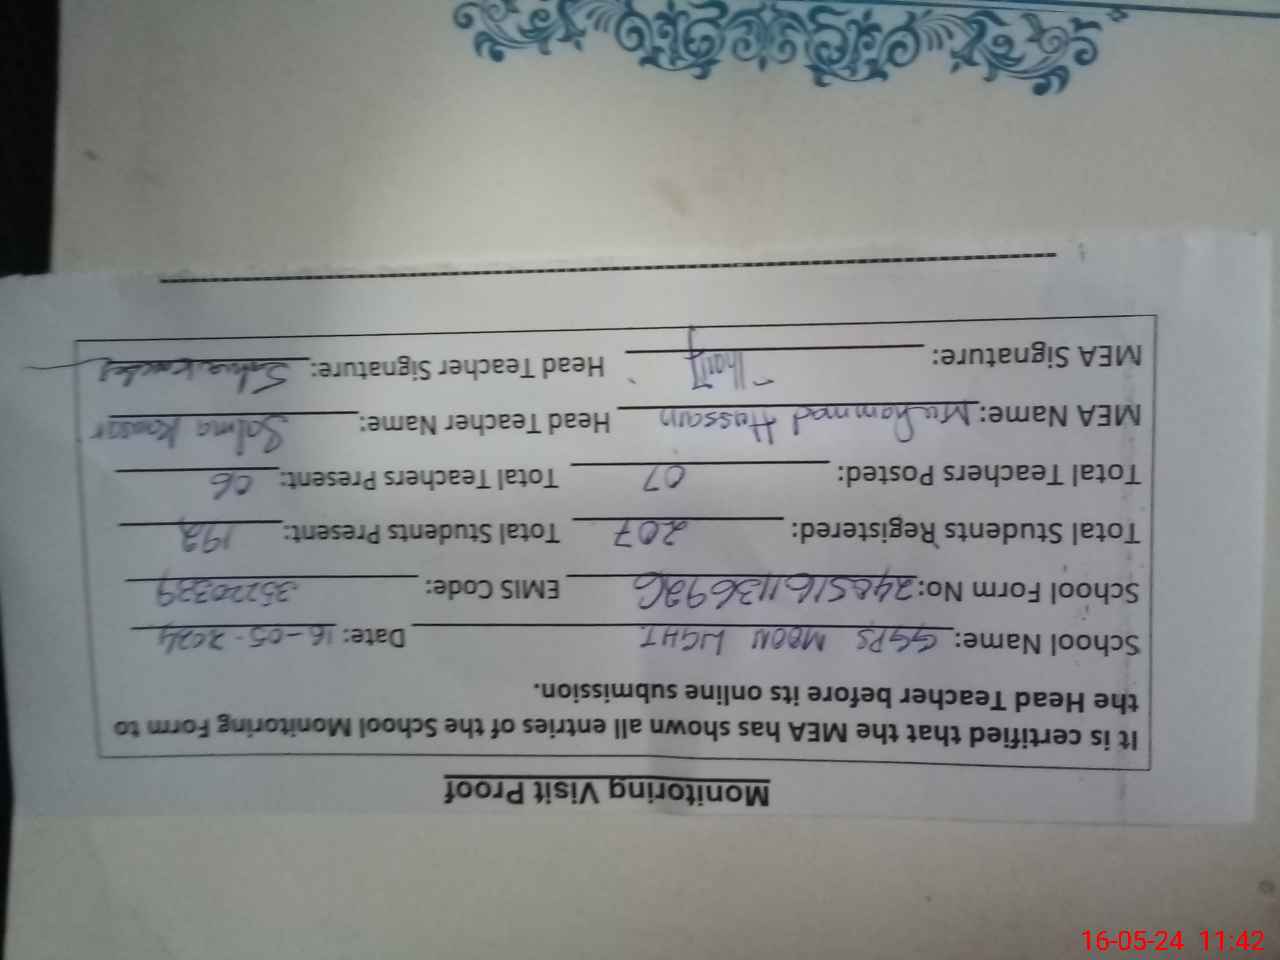 Monitoring Visit Proof
It is certified that the MEA has shown all entries of the School Monitoring Form to
the Head Teacher before its online submission.
School Name: GGPS MOON LIGHT. Date: 16-05-2024
School Form No: EMIS Code: 35220339
Total Students Registered: 207 Total Students Present: 192
Total Teachers Posted: 07 Total Teachers Present: 06
MEA Name: Muhammad Hassain Head Teacher Name: Salma Kausar
MEA Signature: Head Teacher Signature:
16-05-24 11:42